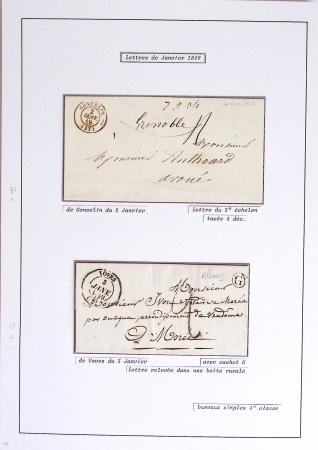 lettres de Janvier 1849
GONCELIN
2
JANV
49
(37)
7.9.54
Grenoble
Monsieur
Monsieur Anthoard
avoué
de Goncelin du 2 Janvier
lettre du 2° échelon
taxée 4 déc.
VOVES
JANV
G
Monsieur
Monsieur
par
arrondissement de Vendome
à Morée
de Voves du 3 Janvier
avec cachet G
lettre relevée dans une boite rurale
bureaux simples 4° classe